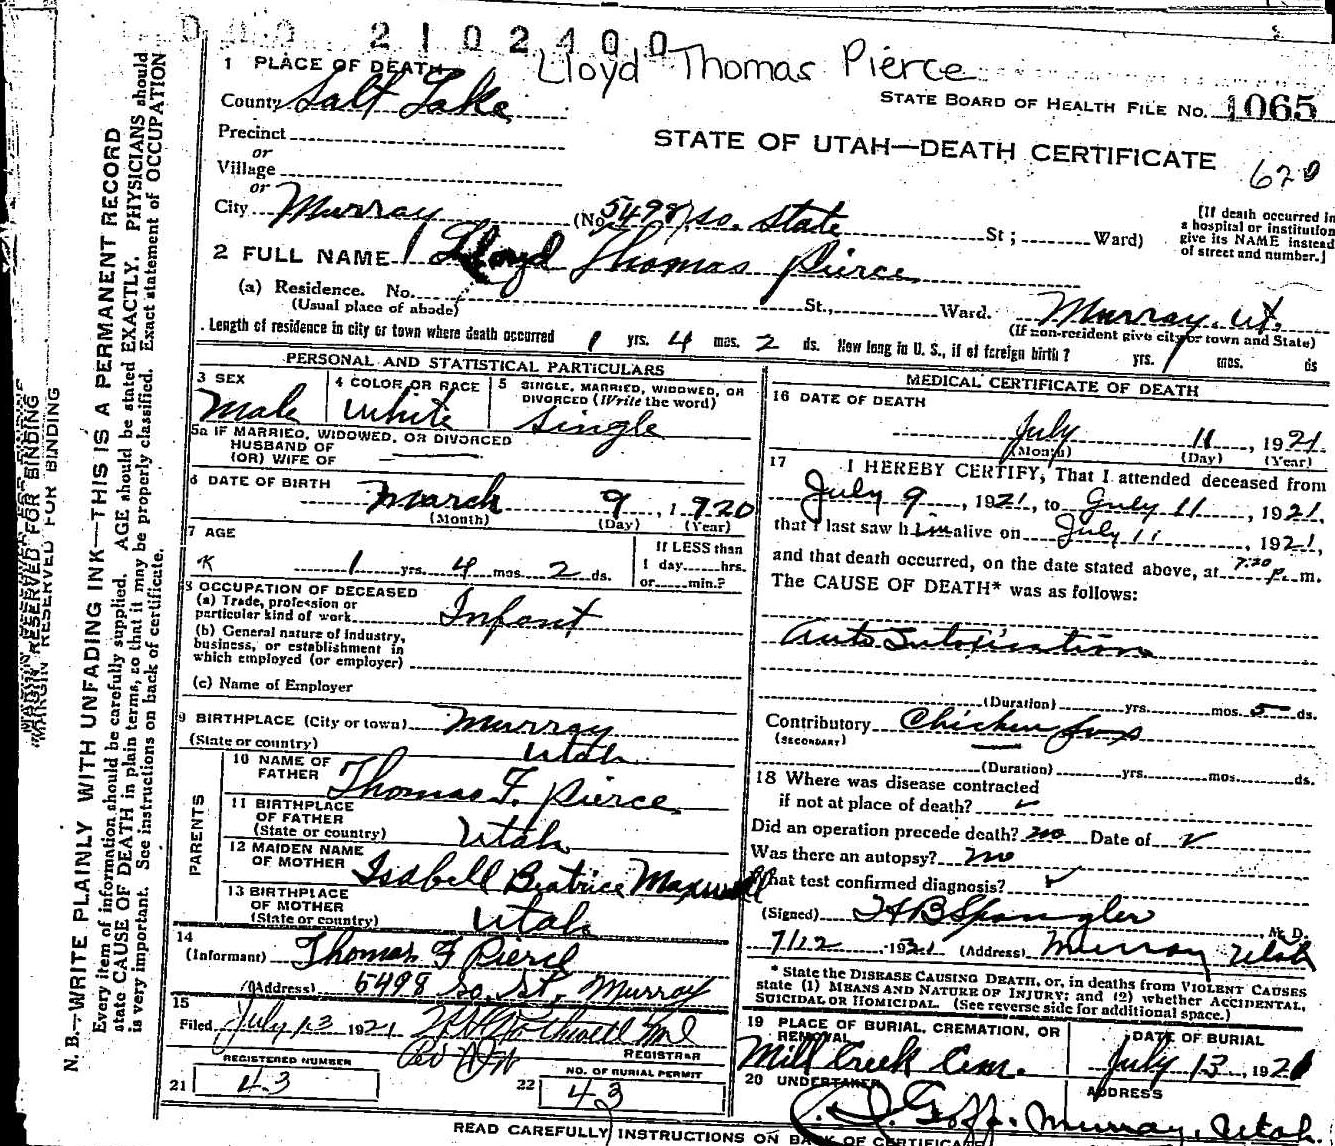 2102400
Lloyd Thomas Pierce
1 PLACE OF DEATH
County Salt Lake
STATE BOARD OF HEALTH FILE No. 1065
Precinct
or
STATE OF UTAH—DEATH CERTIFICATE
620
Village
or
City Murray (No. 5498 so. State St; Ward)
[If death occurred in
a hospital or institution
give its NAME instead
of street and number.]
2 FULL NAME Lloyd Thomas Pierce
(a) Residence. No. St., Ward. Murray, Ut.
(Usual place of abode)
(If non-resident give city or town and State)
Length of residence in city or town where death occurred 1 yrs. 4 mos. 2 ds. How long in U. S., if of foreign birth? yrs. mos. ds
PERSONAL AND STATISTICAL PARTICULARS
3 SEX
Male
4 COLOR OR RACE
White
5 SINGLE, MARRIED, WIDOWED, OR
DIVORCED (Write the word)
Single
5a IF MARRIED, WIDOWED, OR DIVORCED
HUSBAND OF
(OR) WIFE OF
6 DATE OF BIRTH
March 9, 1920
(Month) (Day) (Year)
7 AGE
1 yrs. 4 mos. 2 ds.
If LESS than
1 day hrs.
or min.?
8 OCCUPATION OF DECEASED
(a) Trade, profession or
particular kind of work Infant
(b) General nature of industry,
business, or establishment in
which employed (or employer)
(c) Name of Employer
9 BIRTHPLACE (City or town) Murray
(State or country) Utah
PARENTS
10 NAME OF
FATHER Thomas F. Pierce
11 BIRTHPLACE
OF FATHER
(State or country) Utah
12 MAIDEN NAME
OF MOTHER Isabell Beatrice Maxwell
13 BIRTHPLACE
OF MOTHER
(State or country) Utah
14
(Informant) Thomas F Pierce
(Address) 5498 So. St. Murray
15
Filed July 13 1921
REGISTRAR
REGISTERED NUMBER
21 43
NO. OF BURIAL PERMIT
22 43
MEDICAL CERTIFICATE OF DEATH
16 DATE OF DEATH
July 11, 1921
(Month) (Day) (Year)
17 I HEREBY CERTIFY, That I attended deceased from
July 9, 1921, to July 11, 1921,
that I last saw h im alive on July 11, 1921,
and that death occurred, on the date stated above, at 7:20 p. m.
The CAUSE OF DEATH* was as follows:
Auto Intoxication
(Duration) yrs. mos. 5 ds.
Contributory Chicken pox
(SECONDARY)
(Duration) yrs. mos. ds.
18 Where was disease contracted
if not at place of death? ✓
Did an operation precede death? no Date of ✓
Was there an autopsy? no
What test confirmed diagnosis? ✓
(Signed) H B Spangler M. D.
7/12 1921 (Address) Murray Utah
* State the DISEASE CAUSING DEATH, or, in deaths from VIOLENT CAUSES
state (1) MEANS AND NATURE OF INJURY; and (2) whether ACCIDENTAL,
SUICIDAL OR HOMICIDAL. (See reverse side for additional space.)
19 PLACE OF BURIAL, CREMATION, OR
REMOVAL
Mill Creek Cem.
DATE OF BURIAL
July 13, 1921
20 UNDERTAKER
ADDRESS
Goff. Murray, Utah.
READ CAREFULLY INSTRUCTIONS ON BACK OF CERTIFICATE
MARGIN RESERVED FOR BINDING
N. B.—WRITE PLAINLY WITH UNFADING INK—THIS IS A PERMANENT RECORD
Every item of information should be carefully supplied. AGE should be stated EXACTLY. PHYSICIANS should
state CAUSE OF DEATH in plain terms, so that it may be properly classified. Exact statement of OCCUPATION
is very important. See instructions on back of certificate.